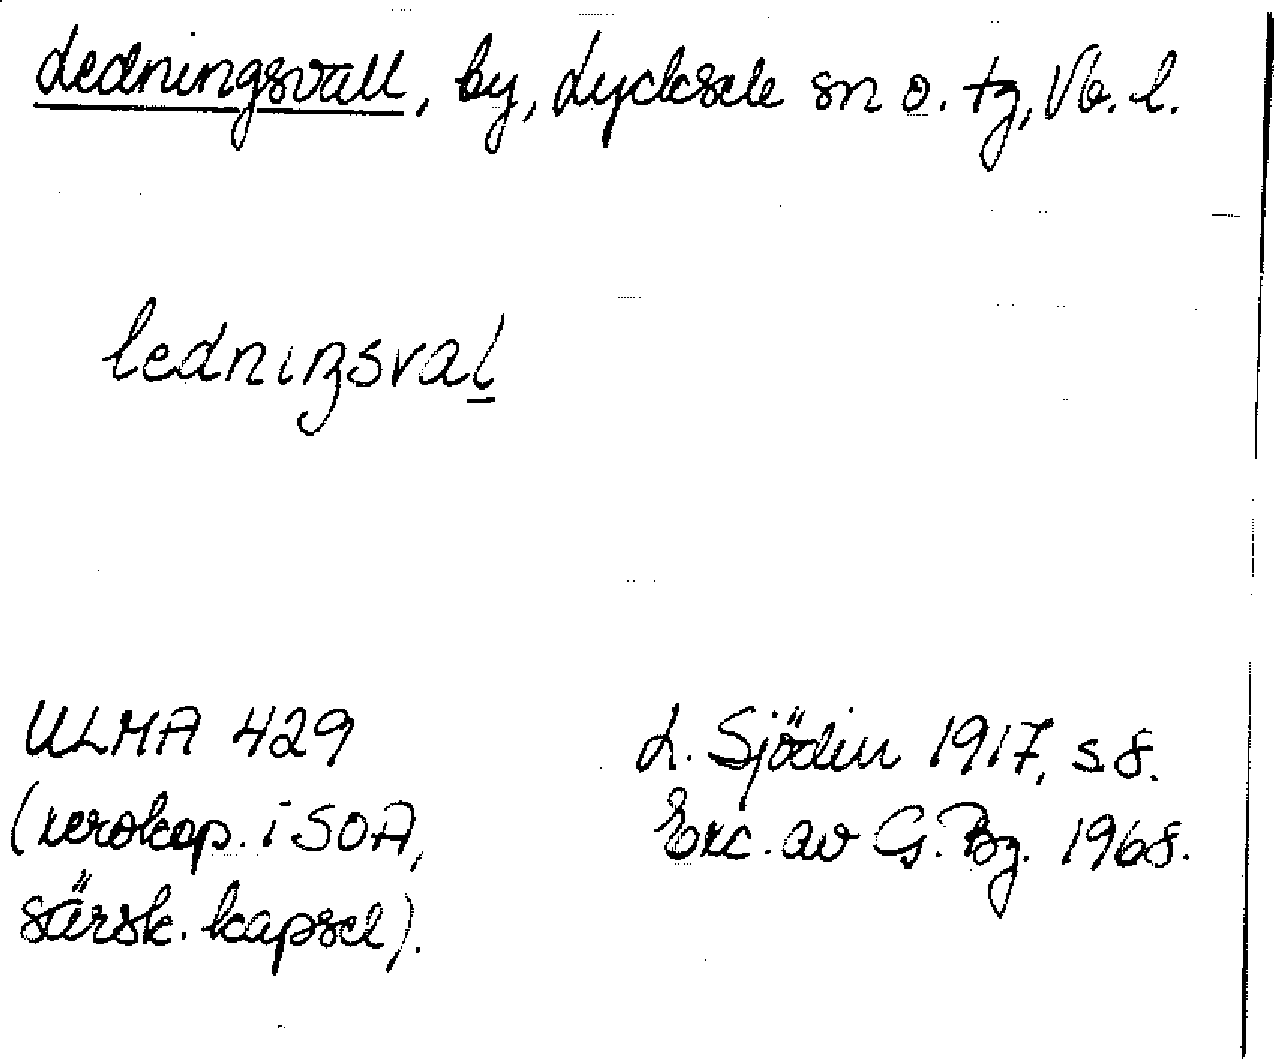 Ledningsvall, by, Lycksele sn o. tg, Vb. l.
lednıŋsval̲
ULMA 429
(xerokop. i SOA,
särsk. kapsel).
L. Sjödin 1917, s 8.
Exc. av G. Bg. 1968.